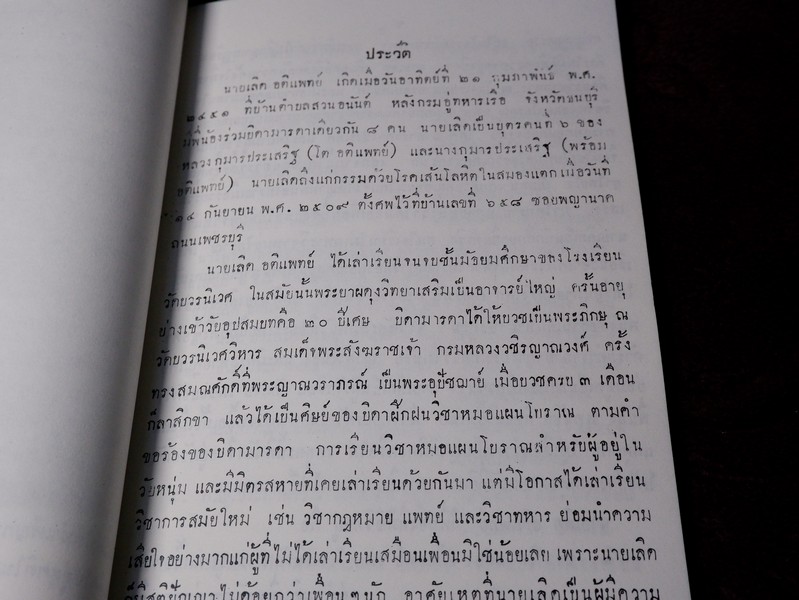 ประวัติ
นายเลิศ อติแพทย์ เกิดเมื่อวันอาทิตย์ที่ ๒๑ กุมภาพันธ์ พ.ศ.
๒๔๕๑ ที่บ้านตำบลสวนอนันต์ หลังกรมอู่ทหารเรือ จังหวัดธนบุรี
มีพี่น้องร่วมบิดามารดาเดียวกัน ๘ คน นายเลิศเป็นบุตรคนที่ ๖ ของ
หลวงกุมารประเสริฐ (โต อติแพทย์) และนางกุมารประเสริฐ (พร้อม
อติแพทย์) นายเลิศถึงแก่กรรมด้วยโรคเส้นโลหิตในสมองแตก เมื่อวันที่
๑๔ กันยายน พ.ศ. ๒๕๐๙ ตั้งศพไว้ที่บ้านเลขที่ ๖๕๘ ซอยพญานาค
ถนนเพชรบุรี
นายเลิศ อติแพทย์ ได้เล่าเรียนจนจบชั้นมัธยมศึกษาของโรงเรียน
วัดบวรนิเวศ ในสมัยนั้นพระยาผดุงวิทยาเสริมเป็นอาจารย์ใหญ่ ครั้นอายุ
ย่างเข้าวัยอุปสมบทคือ ๒๐ ปีเศษ บิดามารดาได้ให้บวชเป็นพระภิกษุ ณ
วัดบวรนิเวศวิหาร สมเด็จพระสังฆราชเจ้า กรมหลวงวชิรญาณวงศ์ ครั้ง
ทรงสมณศักดิ์ที่พระญาณวราภรณ์ เป็นพระอุปัชฌาย์ เมื่อบวชครบ ๓ เดือน
ก็ลาสิกขา แล้วได้เป็นศิษย์ของบิดาฝึกฝนวิชาหมอแผนโบราณ ตามคำ
ขอร้องของบิดามารดา การเรียนวิชาหมอแผนโบราณสำหรับผู้อยู่ใน
วัยหนุ่ม และมีมิตรสหายที่เคยเล่าเรียนด้วยกันมา แต่มีโอกาสได้เล่าเรียน
วิชาการสมัยใหม่ เช่น วิชากฎหมาย แพทย์ และวิชาทหาร ย่อมนำความ
เสียใจอย่างมากแก่ผู้ที่ไม่ได้เล่าเรียนเสมือนเพื่อนมิใช่น้อยเลย เพราะนายเลิศ
ก็มีสติปัญญาไม่ด้อยกว่าเพื่อน ๆ นัก อาศัยเหตุที่นายเลิศเป็นผู้มีความ